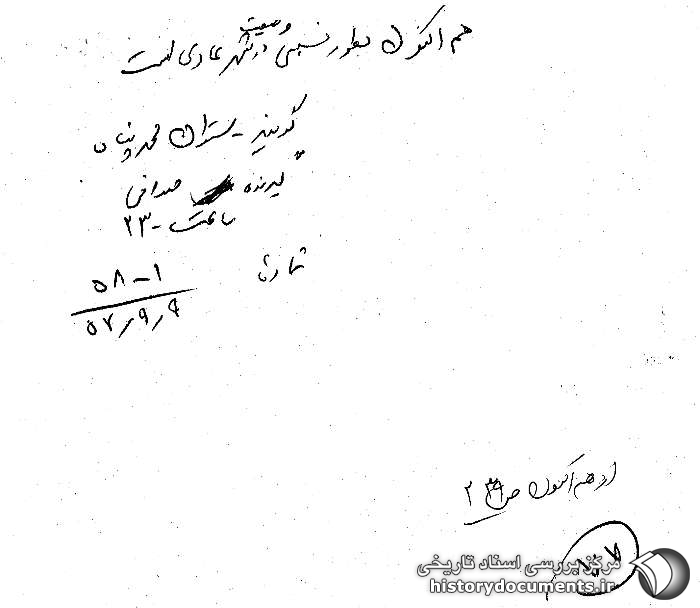 هم اکنون بطور نسبی وضعیت در شهر عادی است
گوینده - ستوان محمد
گیرنده صدافی
ساعت - ۲۳
شماره
۵۸-۱
۵۷٫۹٫۹
از هم اکنون ص ۲
۸۰۷
مرکز بررسی اسناد تاریخی
historydocuments.ir